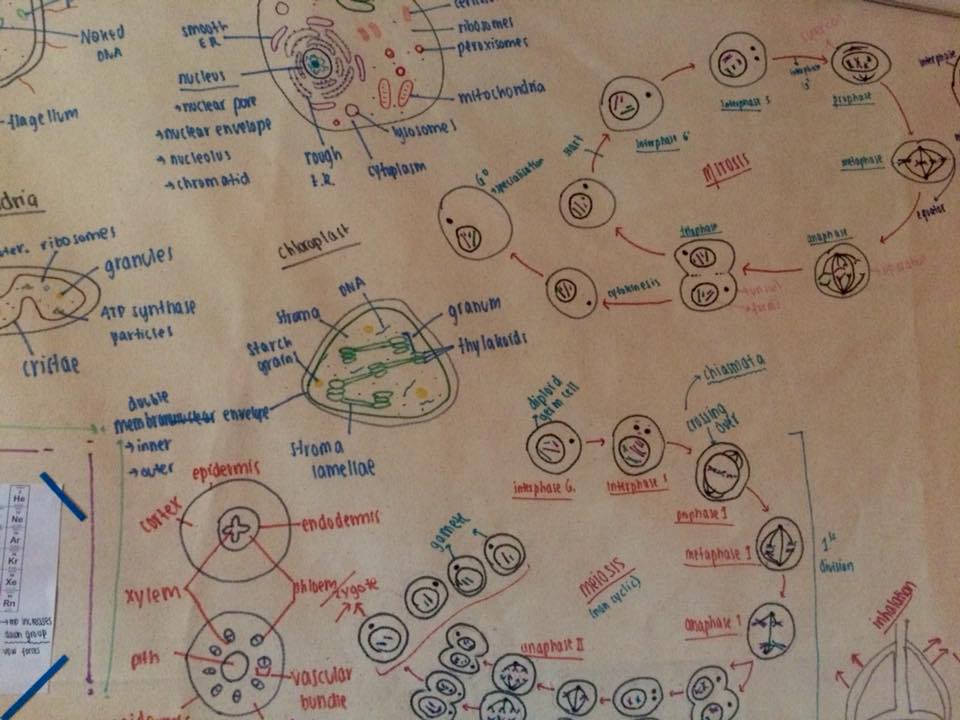 Naked
DNA
flagellum
smooth
E.R.
nucleus
→ nuclear pore
→ nuclear envelope
→ nucleolus
→ chromatid
rough
E.R.
cytoplasm
lysosomes
mitochondria
peroxisomes
ribosomes
start
interphase G
interphase S
interphase
prophase
interphase
metaphase
equator
anaphase
telophase
cytokinesis
G0
specialization
MITOSIS
dria
ribosomes
granules
ATP synthase
particles
cristae
Chloroplast
DNA
stroma
starch
grains
granum
thylakoids
double
membrane envelope
→ inner
→ outer
stroma
lamellae
diploid
germ cell
interphase G
interphase S
chiasmata
crossing
over
prophase I
metaphase I
anaphase I
1st
division
MEIOSIS
(non cyclic)
anaphase II
gamete
zygote
epidermis
cortex
endodermis
xylem
phloem
pith
vascular
bundle
inhalation
He
Ne
Ar
Kr
Xe
Rn
down group